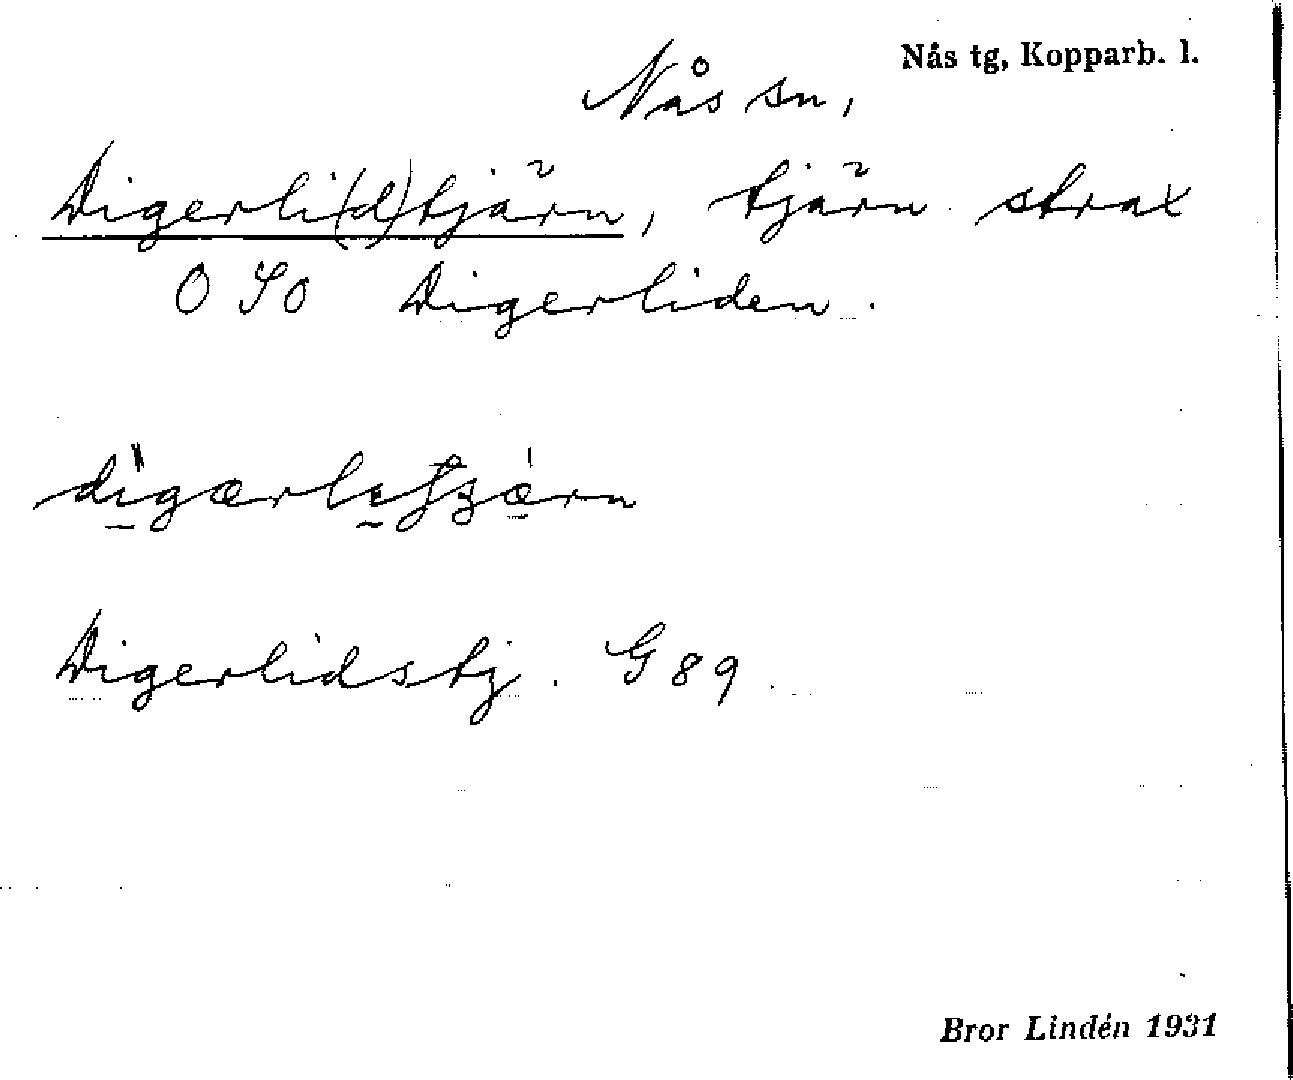 Nås tg, Kopparb. l.
Nås sn,
Digerli(d)tjärn, tjärn strax
O SO Digerliden.
Digerlidstj. G 89.
Bror Lindén 1931